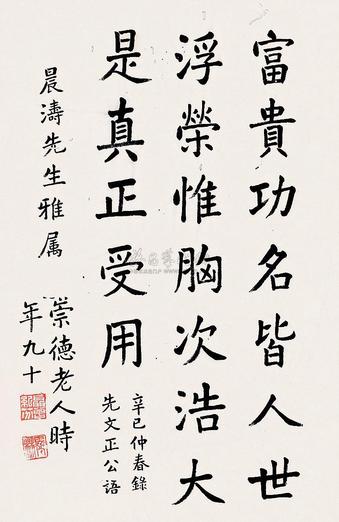 富貴功名皆人世
浮榮惟胸次浩大
是真正受用
辛巳仲春錄
先文正公語
晨濤先生雅属
崇德老人時
年九十